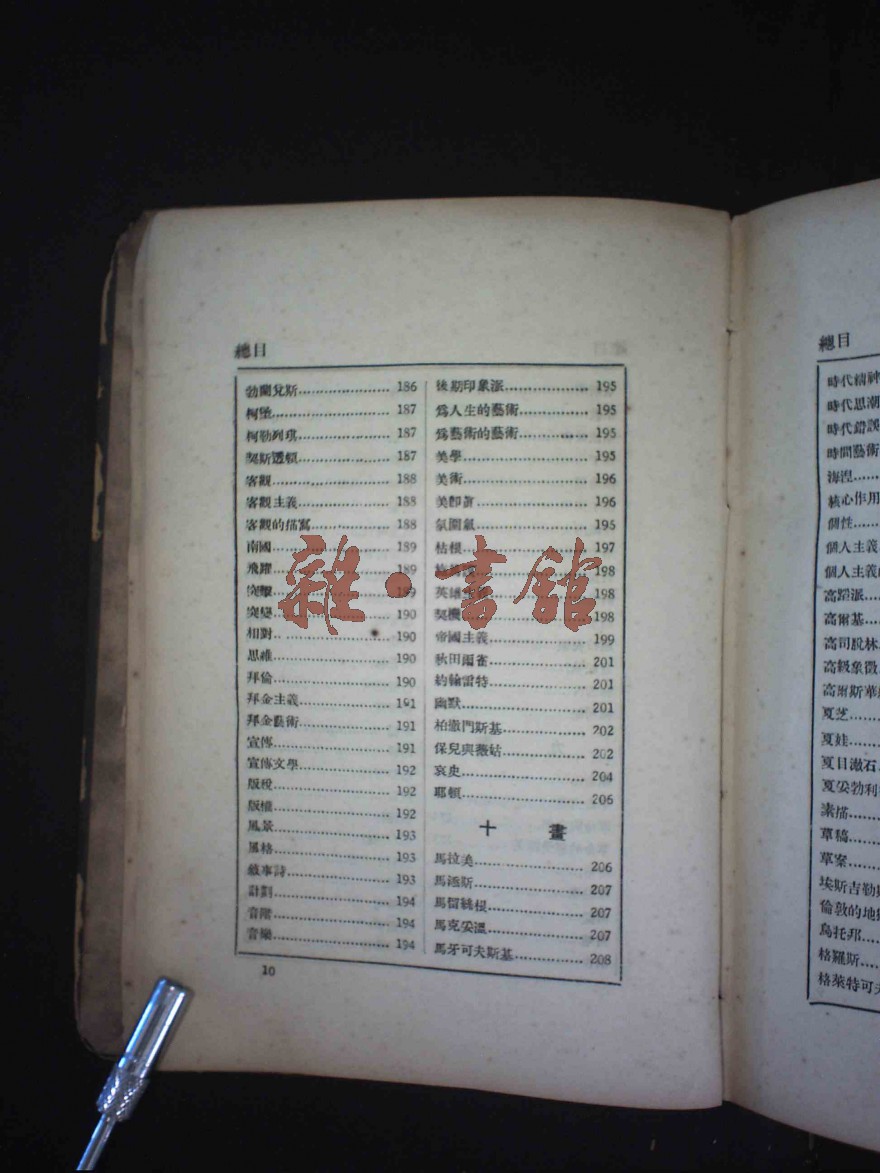 總目
勃蘭兌斯 186
柯堡 187
柯勒列琪 187
契斯透頓 187
客觀 188
客觀主義 188
客觀的描寫 188
南國 189
飛躍 189
突擊 189
突變 190
相對 190
思維 190
拜倫 190
拜金主義 191
拜金藝術 191
宣傳 191
宣傳文學 192
版稅 192
版權 192
風景 193
風格 193
敍事詩 193
計劃 194
音階 194
音樂 194
後期印象派 195
爲人生的藝術 195
爲藝術的藝術 195
美學 195
美術 196
美卽眞 196
氛圍氣 195
枯根 197
198
英雄主義 198
契機 198
帝國主義 199
秋田雨雀 201
約翰雷特 201
幽默 201
柏撒門斯基 202
保兒與薇姑 202
哀史 204
耶頓 206
十畫
馬拉美 206
馬洒斯 207
馬留綫根 207
馬克安溫 207
馬牙可夫斯基 208
10
總目
時代精神
時代思潮
時代錯誤
時間藝術
海涅
核心作用
個性
個人主義
個人主義
高蹈派
高爾基
高司脫林
高級象徵
高爾斯華
夏芝
夏娃
夏目漱石
夏妥勃利
素描
草稿
草案
埃斯吉勒
倫敦的地
烏托邦
格羅斯
格萊特可夫
雜·書館